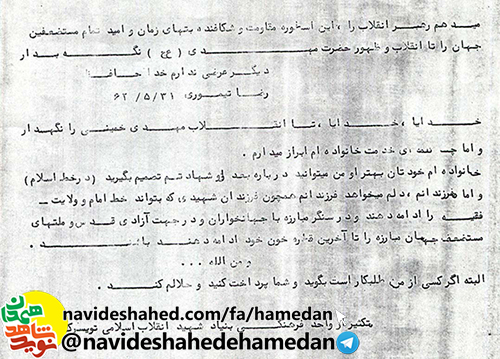 میدهم رهبر انقلاب را ، این اسطوره مقاومت و شکافنده بتهای زمان و امید تمام مستضعفین
جهان را تا انقلاب و ظهور حضرت مهدی ( عج ) نگهدار
دیگر عرضی ندارم خدا حافظ
رضا تیموری ۶۲/۵/۳۱
خدایا ، خدایا ، تا انقلاب مهدی خمینی را نگهدار
و اما چند خدمت خانواده ام ابراز میدارم .
خانواده ام خودتان بهتر از من میتوانید درباره بعد از شهادتم تصمیم بگیرید ( در خط اسلام )
و اما فرزندانم ، دلم میخواهد فرزندانم همچون فرزندان شهیدی که بتواند خط امام و ولایت
فقیه را ادامه دهند و در سنگر مبارزه با جهانخواران و در جهت آزادی قدس و ملتهای
مستضعف جهان مبارزه را تا آخرین قطره خون خود ادامه دهند باشند .
و من الله ...
البته اگر کسی از من طلبکار است بگوید و شما پرداخت کنید و حلالم کنید .
تکثیر از واحد فرهنگی بنیاد شهید انقلاب اسلامی تویسرکان
نوید شاهد همدان
navideshahed.com/fa/hamedan
@navideshahedehamedan